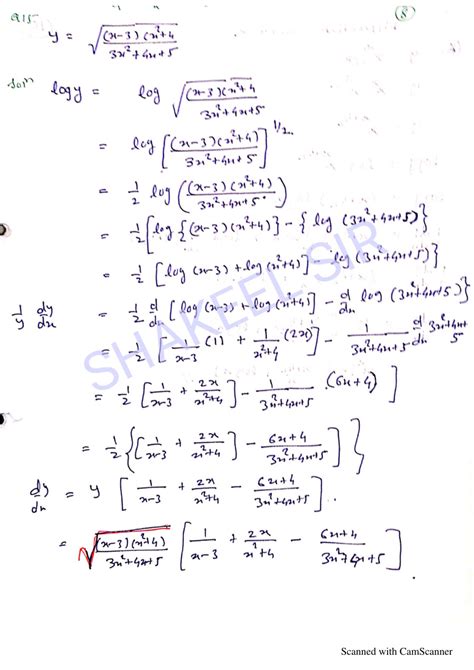 Q15. (8)
y = √((x-3)(x²+4 / 3x²+4x+5)
Solⁿ logy = log √((x-3)(x²+4 / 3x²+4x+5)
= log [(x-3)(x²+4) / 3x²+4x+5]^1/2
= 1/2 log ((x-3)(x²+4) / 3x²+4x+5)
= 1/2 [log {(x-3)(x²+4)} - {log (3x²+4x+5)}
= 1/2 [log (x-3) + log (x²+4)] - log (3x²+4x+5)}
1/y dy/dx = 1/2 d/dx [log (x-3) + log (x²+4] - d/dx log (3x²+4x+5)}
= 1/2 [1/x-3 (1) + 1/x²+4 (2x)] - 1/3x²+4x+5 d/dx 3x²+4x+5
= 1/2 [1/x-3 + 2x/x²+4] - 1/3x²+4x+5 (6x+4)]
= 1/2 {[1/x-3 + 2x/x²+4 - 6x+4/3x²+4x+5]}
dy/dx = y [1/x-3 + 2x/x²+4 - 6x+4/3x²+4x+5].
= √((x-3)(x²+4) / 3x²+4x+5) [1/x-3 + 2x/x²+4 - 6x+4/3x²+4x+5]
SHAKEEL SIR
Scanned with CamScanner